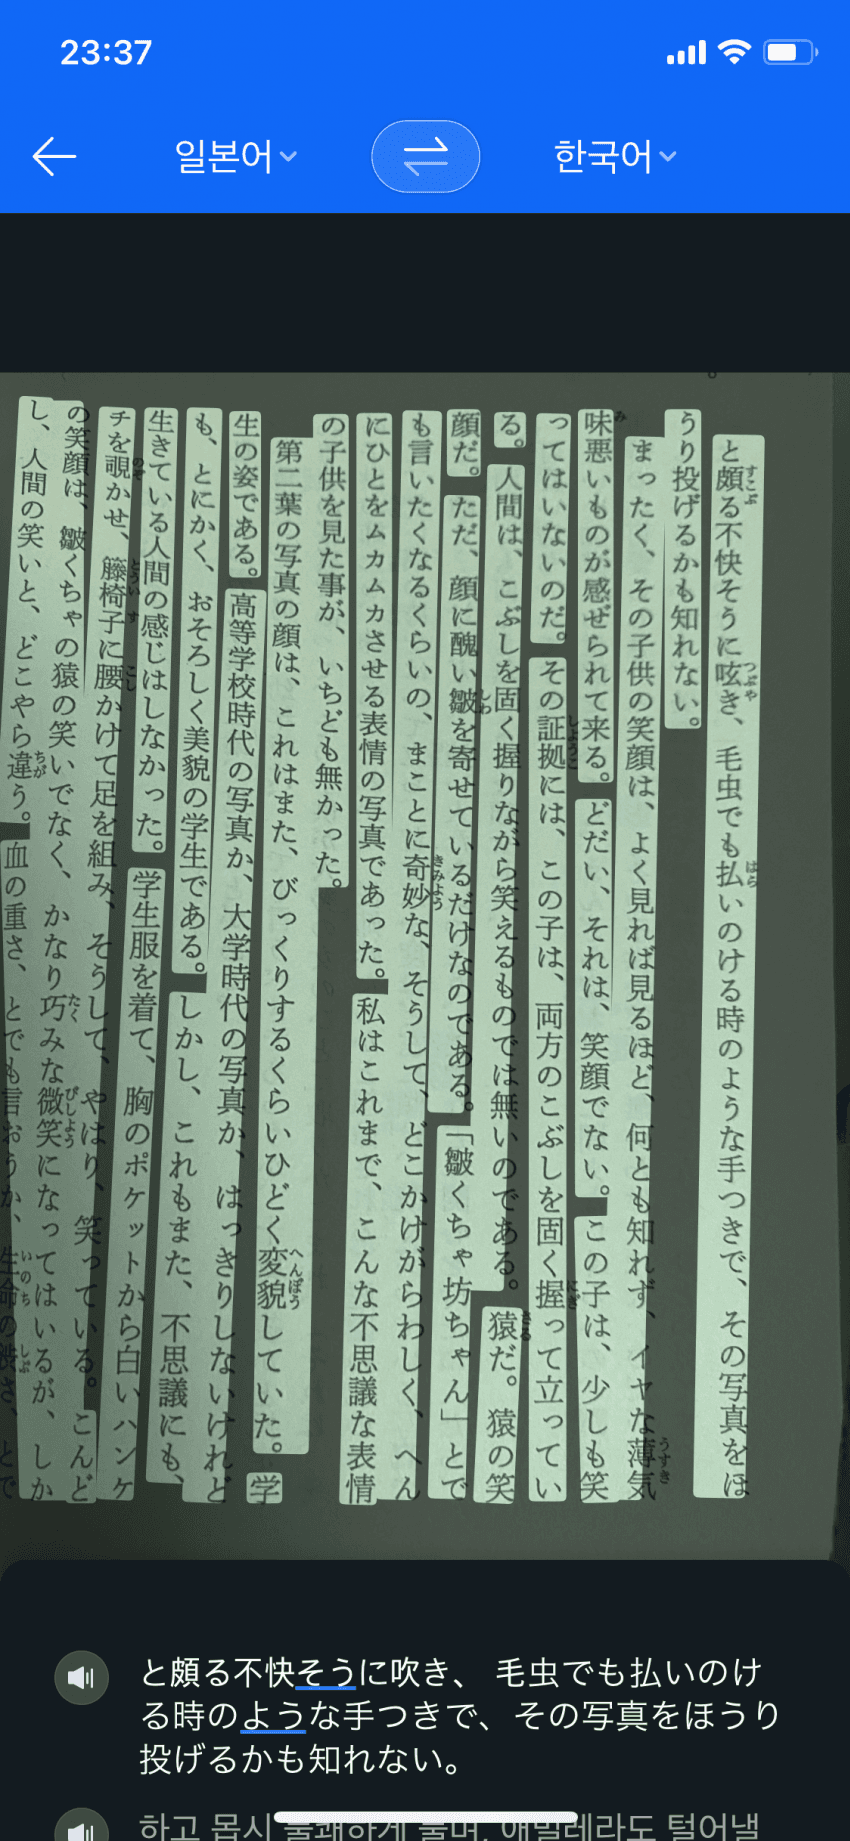 23:37
일본어
한국어
と頗る不快そうに呟き、毛虫でも払いのける時のような手つきで、その写真をほ
うり投げるかも知れない。
まったく、その子供の笑顔は、よく見れば見るほど、何とも知れず、イヤな薄気
味悪いものが感ぜられて来る。どだい、それは、笑顔でない。この子は、少しも笑
ってはいないのだ。その証拠には、この子は、両方のこぶしを固く握って立ってい
る。人間は、こぶしを固く握りながら笑えるものでは無いのである。猿だ。猿の笑
顔だ。ただ、顔に醜い皺を寄せているだけなのである。「皺くちゃ坊ちゃん」とで
も言いたくなるくらいの、まことに奇妙な、そうして、どこかけがらわしく、へん
にひとをムカムカさせる表情の写真であった。私はこれまで、こんな不思議な表情
の子供を見た事が、いちども無かった。
第二葉の写真の顔は、これはまた、びっくりするくらいひどく変貌していた。学
生の姿である。高等学校時代の写真か、大学時代の写真か、はっきりしないけれど
も、とにかく、おそろしく美貌の学生である。しかし、これもまた、不思議にも、
生きている人間の感じはしなかった。学生服を着て、胸のポケットから白いハンケ
チを覗かせ、籐椅子に腰かけて足を組み、そうして、やはり、笑っている。こんど
の笑顔は、皺くちゃの猿の笑いでなく、かなり巧みな微笑になってはいるが、しか
し、人間の笑いと、どこやら違う。血の重さ、とでも言おうか、生命の渋さ、とで
と頗る不快そうに吹き、 毛虫でも払いのけ
る時のような手つきで、その写真をほうり
投げるかも知れない。
하고 몹시 불쾌하게 불며, 애벌레라도 털어낼